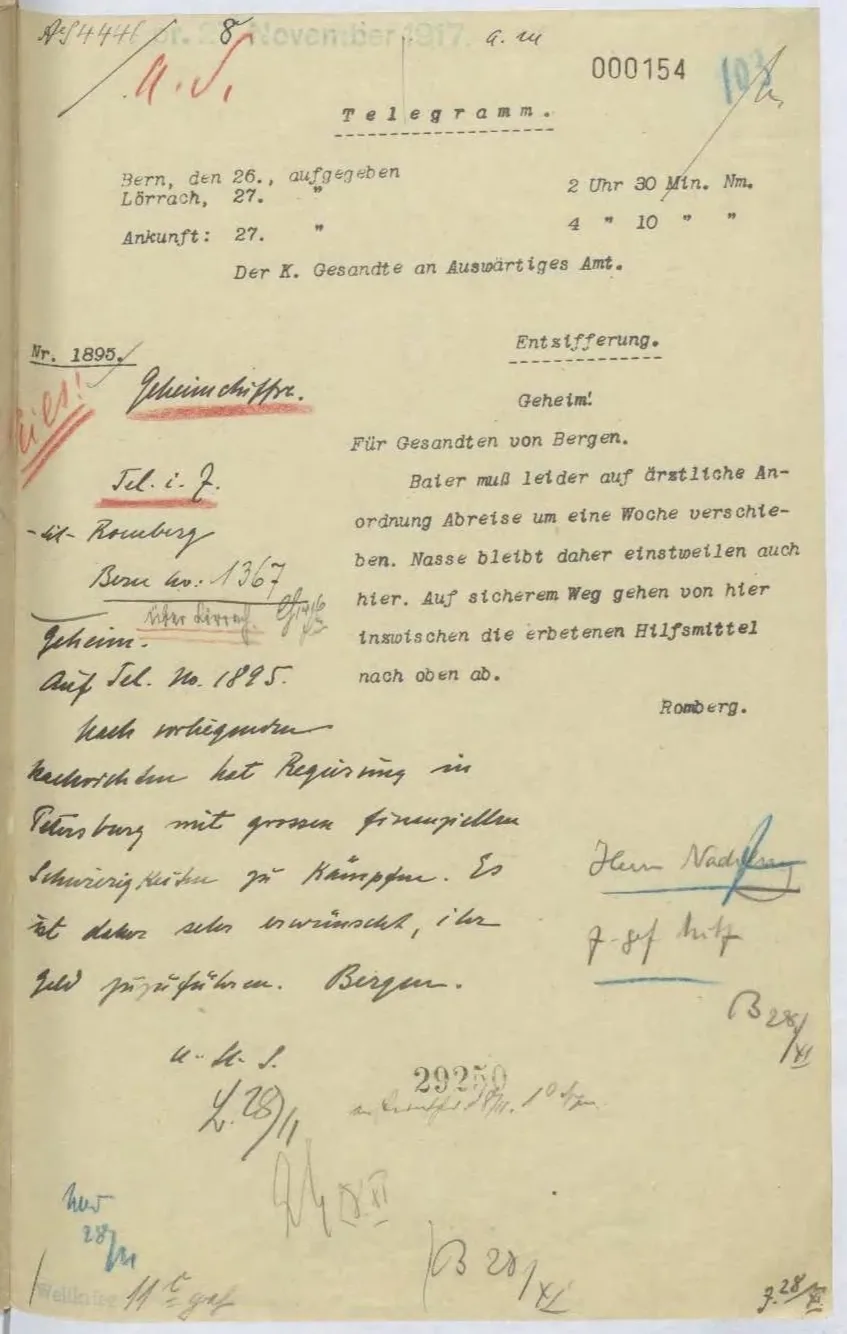 AS 4446 pr. 28 November 1917. a. m
A. S.
000154
103
Telegramm.
Bern, den 26., aufgegeben
Lörrach, 27. " 2 Uhr 30 Min. Nm.
Ankunft: 27. " 4 " 10 " "
Der K. Gesandte an Auswärtiges Amt.
Nr. 1895.
Entzifferung.
Geheim!
Für Gesandten von Bergen.
Baier muß leider auf ärztliche An-
ordnung Abreise um eine Woche verschie-
ben. Nasse bleibt daher einstweilen auch
hier. Auf sicherem Weg gehen von hier
inzwischen die erbetenen Hilfsmittel
nach oben ab.
Romberg.
Geheimchiffre.
Tel. i. Z.
Romberg
Bern No: 1367
über Lörrach.
Geheim.
Auf Tel. No. 1895.
Nach vorliegenden
Nachrichten hat Regierung in
Petersburg mit grossen finanziellen
Schwierigkeiten zu kämpfen. Es
ist daher sehr erwünscht, ihr
Geld zuzuführen. Bergen.
Herrn
N. d. S.
29250
28/11
B 28/XI
28/11
B 28/XI
Weltkrieg 11 c
28/XI